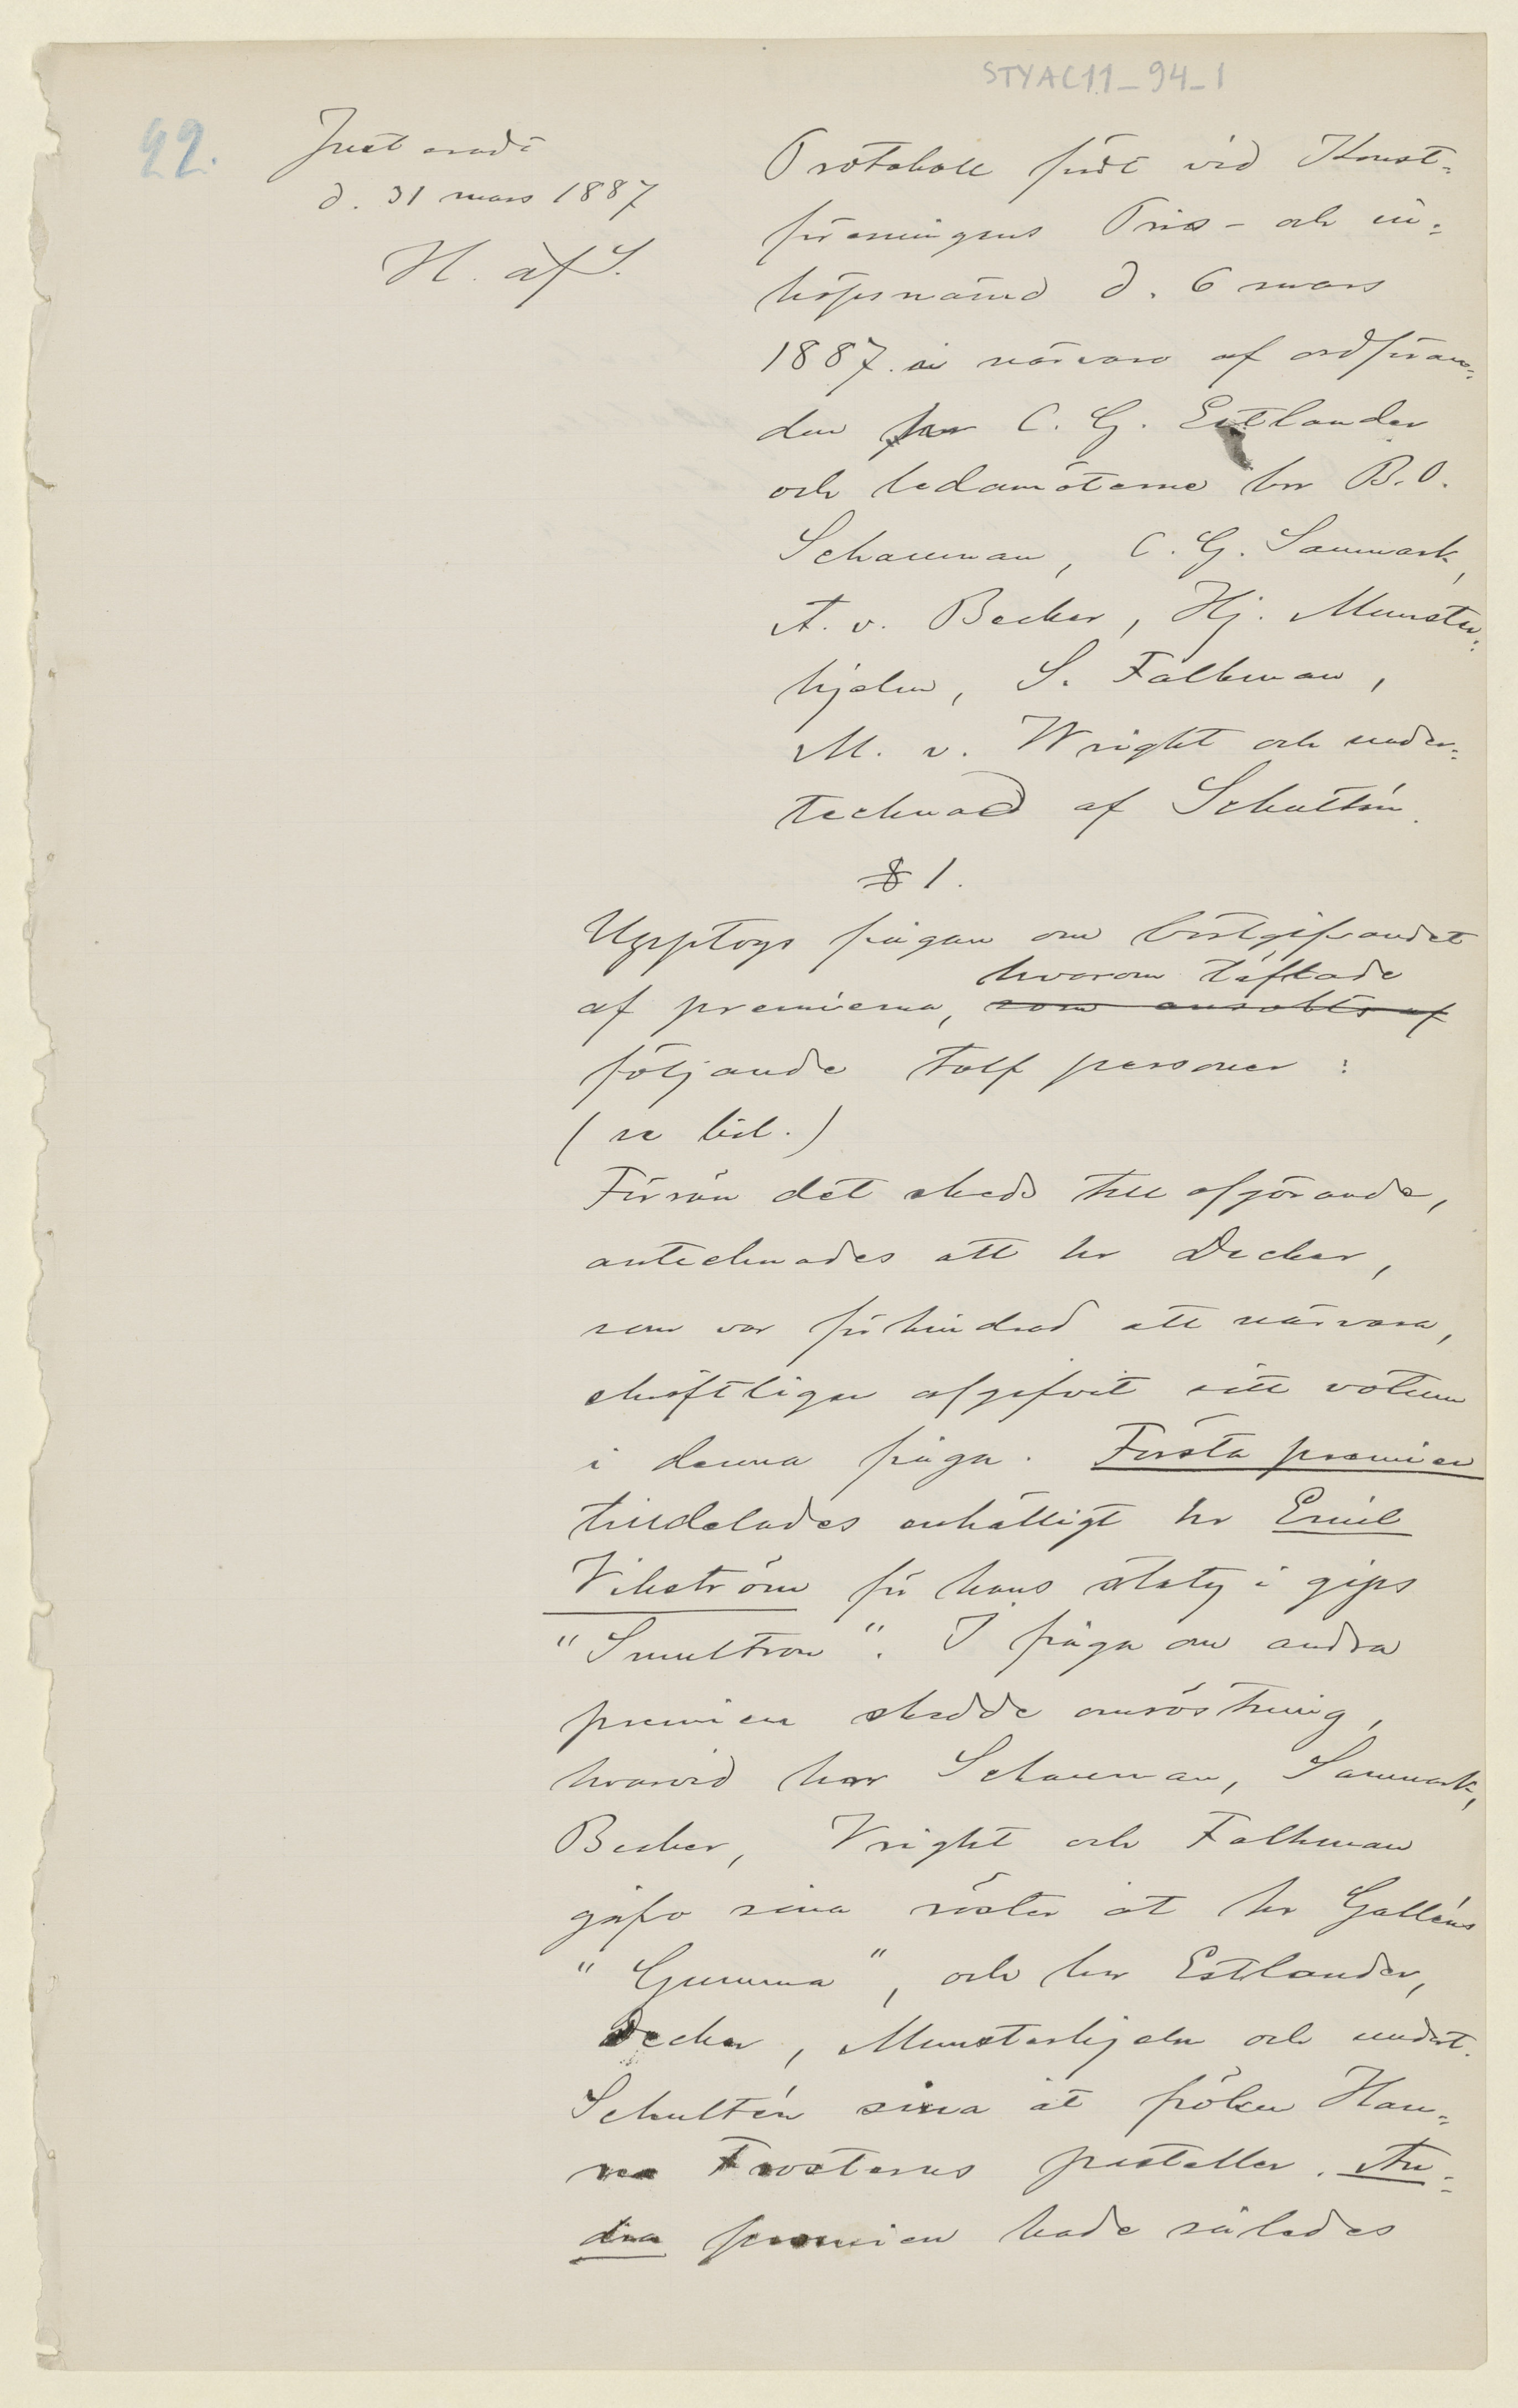 STYAC11_94_1
22.
Justerades
d. 31 mars 1887
H. af S.
Protokoll fördt vid Konst=
föreningens Pris- och in=
köpsnämd d. 6 mars
1887 i närvaro af ordföran=
den herr C. G. Estlander
och ledamöterne hrr B. O.
Schauman, C. G. Sanmark,
A. v. Becker, Hj. Munster=
hjelm, S. Falkman,
M. v. Wright och under=
tecknad af Schultén.
§ 1.
Upptogs frågan om bortgifvandet
hvarom täflade
af premierna, som ansökts af
följande tolf personer :
(se bil.)
Förrän det skeds till afgörande,
antecknades att hr Decker,
som var förhindrad att närvara,
skriftligen afgifvit sitt votum
i denna fråga. Första premien
tilldelades enhälligt hr Emil
Vikström för hans staty i gips
"Smultron". I fråga om andra
premien skedde omröstning,
hvarvid hrr Schauman, Sanmark,
Becker, Vright och Falkman
gåfvo sina röster åt hr Galléns
"Gumma", och hrr Estlander,
Decker, Munsterhjelm och undert.
Schultén sina åt fröken Han=
na Frosterus pasteller. An=
dra premien hade således